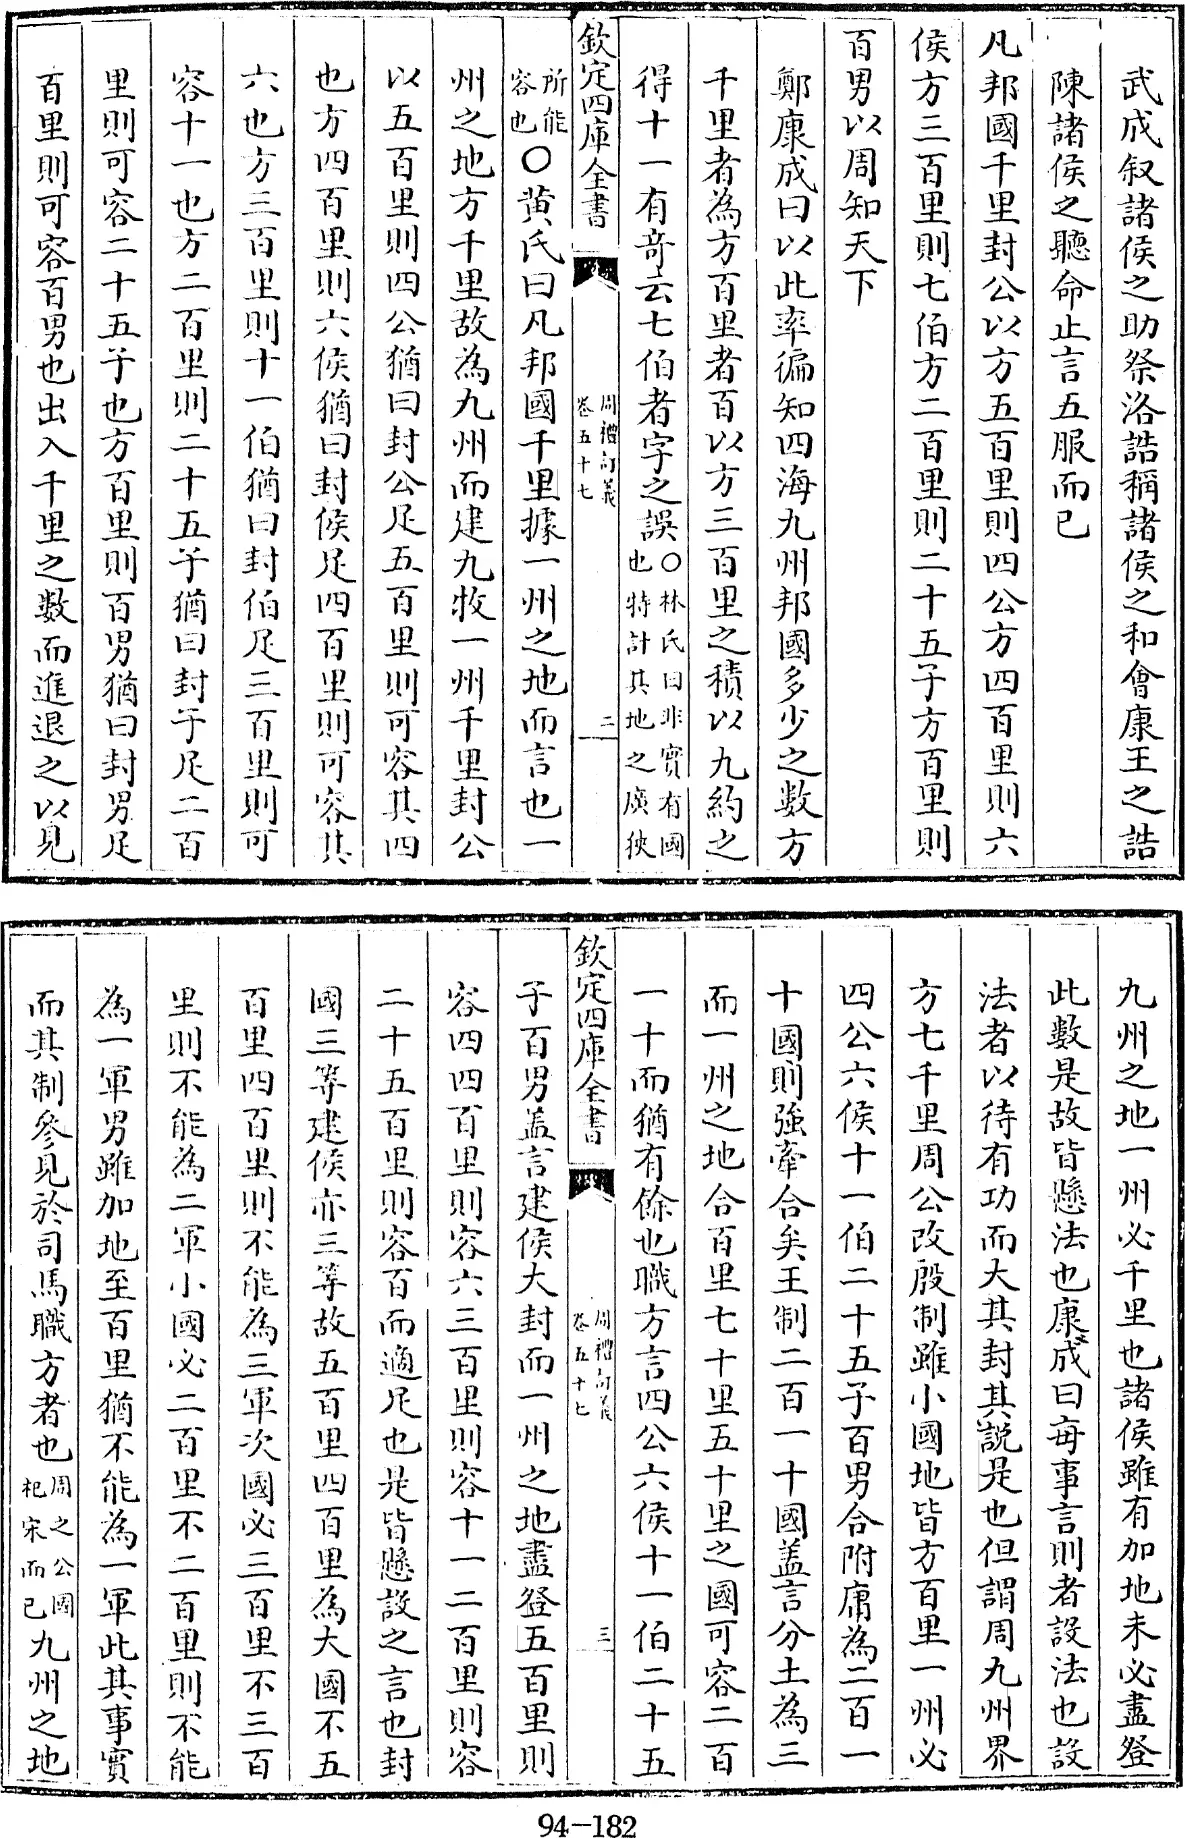 武成叙諸侯之助祭洛誥稱諸侯之和會康王之誥
陳諸侯之聽命止言五服而已
凡邦國千里封公以方五百里則四公方四百里則六
侯方三百里則七伯方二百里則二十五子方百里則
百男以周知天下
鄭康成曰以此率徧知四海九州邦國多少之數方
千里者為方百里者百以方三百里之積以九約之
得十一有竒云七伯者字之誤○林氏曰非實有國也特計其地之廣狹
欽定四庫全書
周禮訂義
卷五十七
二
所能容也○黄氏曰凡邦國千里據一州之地而言也一
州之地方千里故為九州而建九牧一州千里封公
以五百里則四公猶曰封公足五百里則可容其四
也方四百里則六侯猶曰封侯足四百里則可容其
六也方三百里則十一伯猶曰封伯足三百里則可
容十一也方二百里則二十五子猶曰封子足二百
里則可容二十五子也方百里則百男猶曰封男足
百里則可容百男也出入千里之數而進退之以見
九州之地一州必千里也諸侯雖有加地未必盡登
此數是故皆懸法也康成曰每事言則者設法也設
法者以待有功而大其封其説是也但謂周九州界
方七千里周公改殷制雖小國地皆方百里一州必
四公六侯十一伯二十五子百男合附庸為二百一
十國則強牽合矣王制二百一十國盖言分土為三
而一州之地合百里七十里五十里之國可容二百
一十而猶有餘也職方言四公六侯十一伯二十五
欽定四庫全書
周禮訂義
卷五十七
三
子百男盖言建侯大封而一州之地盡登五百里則
容四四百里則容六三百里則容十一二百里則容
二十五百里則容百而適足也是皆懸設之言也封
國三等建侯亦三等故五百里四百里為大國不五
百里四百里則不能為三軍次國必三百里不三百
里則不能為二軍小國必二百里不二百里則不能
為一軍男雖加地至百里猶不能為一軍此其事實
而其制參見於司馬職方者也周之公國杞宋而已九州之地
94-182